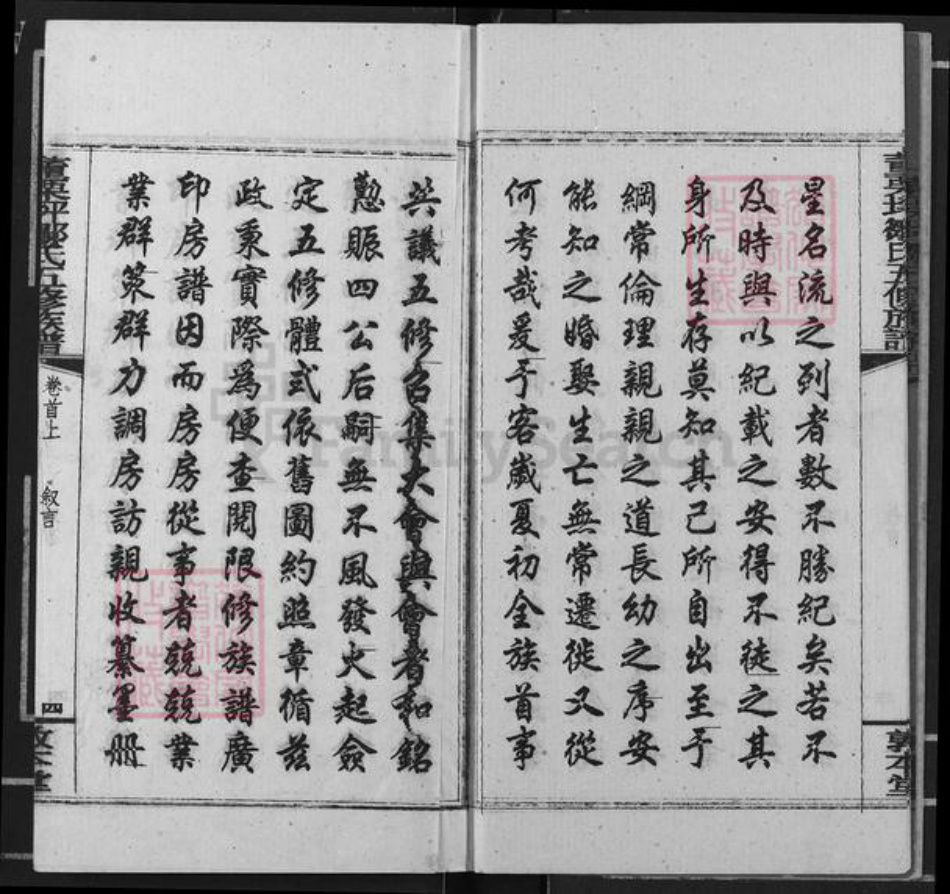 星名流之列者數不勝紀矣若不
及時與以紀載之安得不徒之其
身所生存莫知其己所自出至于
綱常倫理親親之道長幼之序安
能知之婚娶生亡無常遷徙又從
何考哉爰于客歲夏初全族首事
共議五修召集大會與會者和銘
懃賑四公后嗣無不風發火起僉
定五修體式依舊圖約照章循茲
政秉實際為便查閱限修族譜廣
印房譜因而房房從事者兢兢業
業群策群力調房訪親收纂墨册
卷首上
叙言
四
敦本堂
FamilySearch